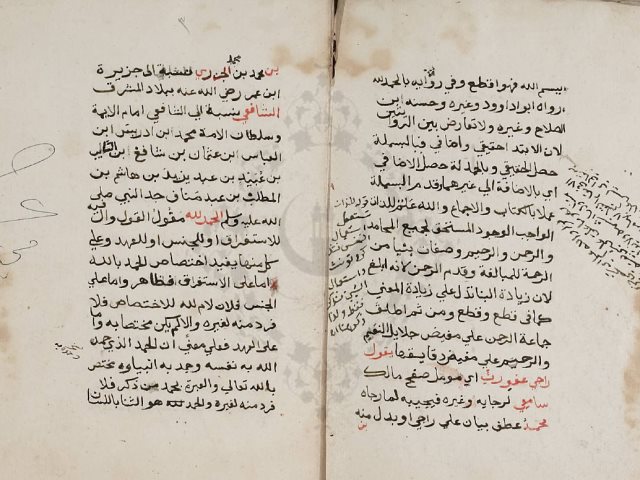 ببسم الله فهو اقطع وفي رواية بالحمد لله
رواه ابو داوود وغيره وحسنه ابن
الصلاح وغيره ولا تعارض بين الروايتين
لان الابتدا حقيقي واضافي فبالبسملة
حصل الحقيقي وبالحمدلة حصل الاضافي
اي بالاضافة الي غيرهما وقدم البسملة
عملا بالكتاب والاجماع والله علم للذات
الواجب الوجود المستحق لجميع المحامد
والرحمن والرحيم وصفات بنيا من
الرحمة للمبالغة وقدم الرحمن لانه ابلغ
لان زيادة البنا تدل علي زيادة المعني
كما في قطع وقطع ومن ثم اطلق
جماعة الرحمن علي مفيض جلايل النعم
والرحيم علي مفيض دقايقها يقول
راجي عفو رب اي مومل صفح مالك
سامع لرجايه وغيره فيجيبه لما رجاه
محمد عطف بيان علي راجي او بدل منه
بن
بن محمد بن محمد بن الجزري نسبة الى جزيرة
ابن عمر رضي الله عنه ببلاد المشرق
الشافعي نسبة الي الشافعي امام الايمة
وسلطان الامة محمد ابن ادريس ابن
العباس ابن عثمان بن شافع ابن السايب
بن عبيد بن عبد يزيد بن هاشم بن
المطلب بن عبد مناف جد النبي صلى
الله عليه وسلم الحمد لله مقول القول وال فيه
للاستغراق او للجنس او للعهد وعلي
كل منها يفيد اختصاص الحمد بالله
اما علي الاستغراق فظاهر واما علي
الجنس فلان لام لله للاختصاص فلا
فرد منه لغيره والا لم يكن مختصا به واما
علي العهد فعلي معني ان الحمد الذي حمد
الله به نفسه وحمد به انبياوه مختص
بالله تعالي والعبرة بحمد من ذكر فلا
فرد منه لغيره والحمد هو الثنا باللسان